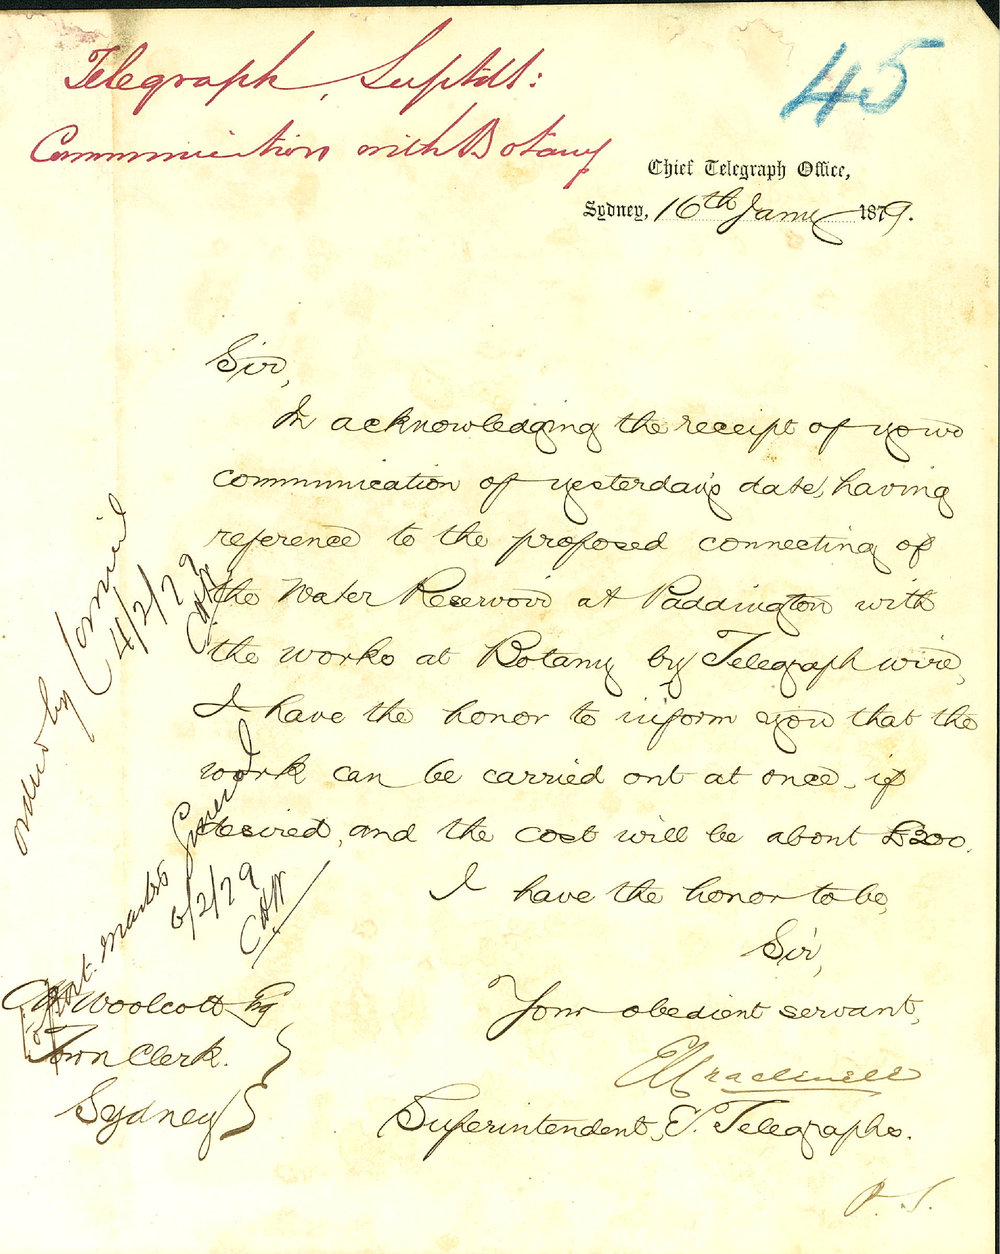 Telegraph Suptdt:
Communication with Botany
45
Chief Telegraph Office,
Sydney, 16th Jany 1879.
Sir,
In acknowledging the receipt of your
communication of yesterday's date, having
reference to the proposed connecting of
the Water Reservoir at Paddington with
the works at Botany by Telegraph wire,
I have the honor to inform you that the
work can be carried out at once, if
desired, and the cost will be about £300.
I have the honor to be,
Sir,
Your obedient servant,
Superintendent, E. Telegraphs.
Woolcott Esq
Town Clerk.
Sydney
order by Council
4/2/79
CHW
6/2/79
CHW